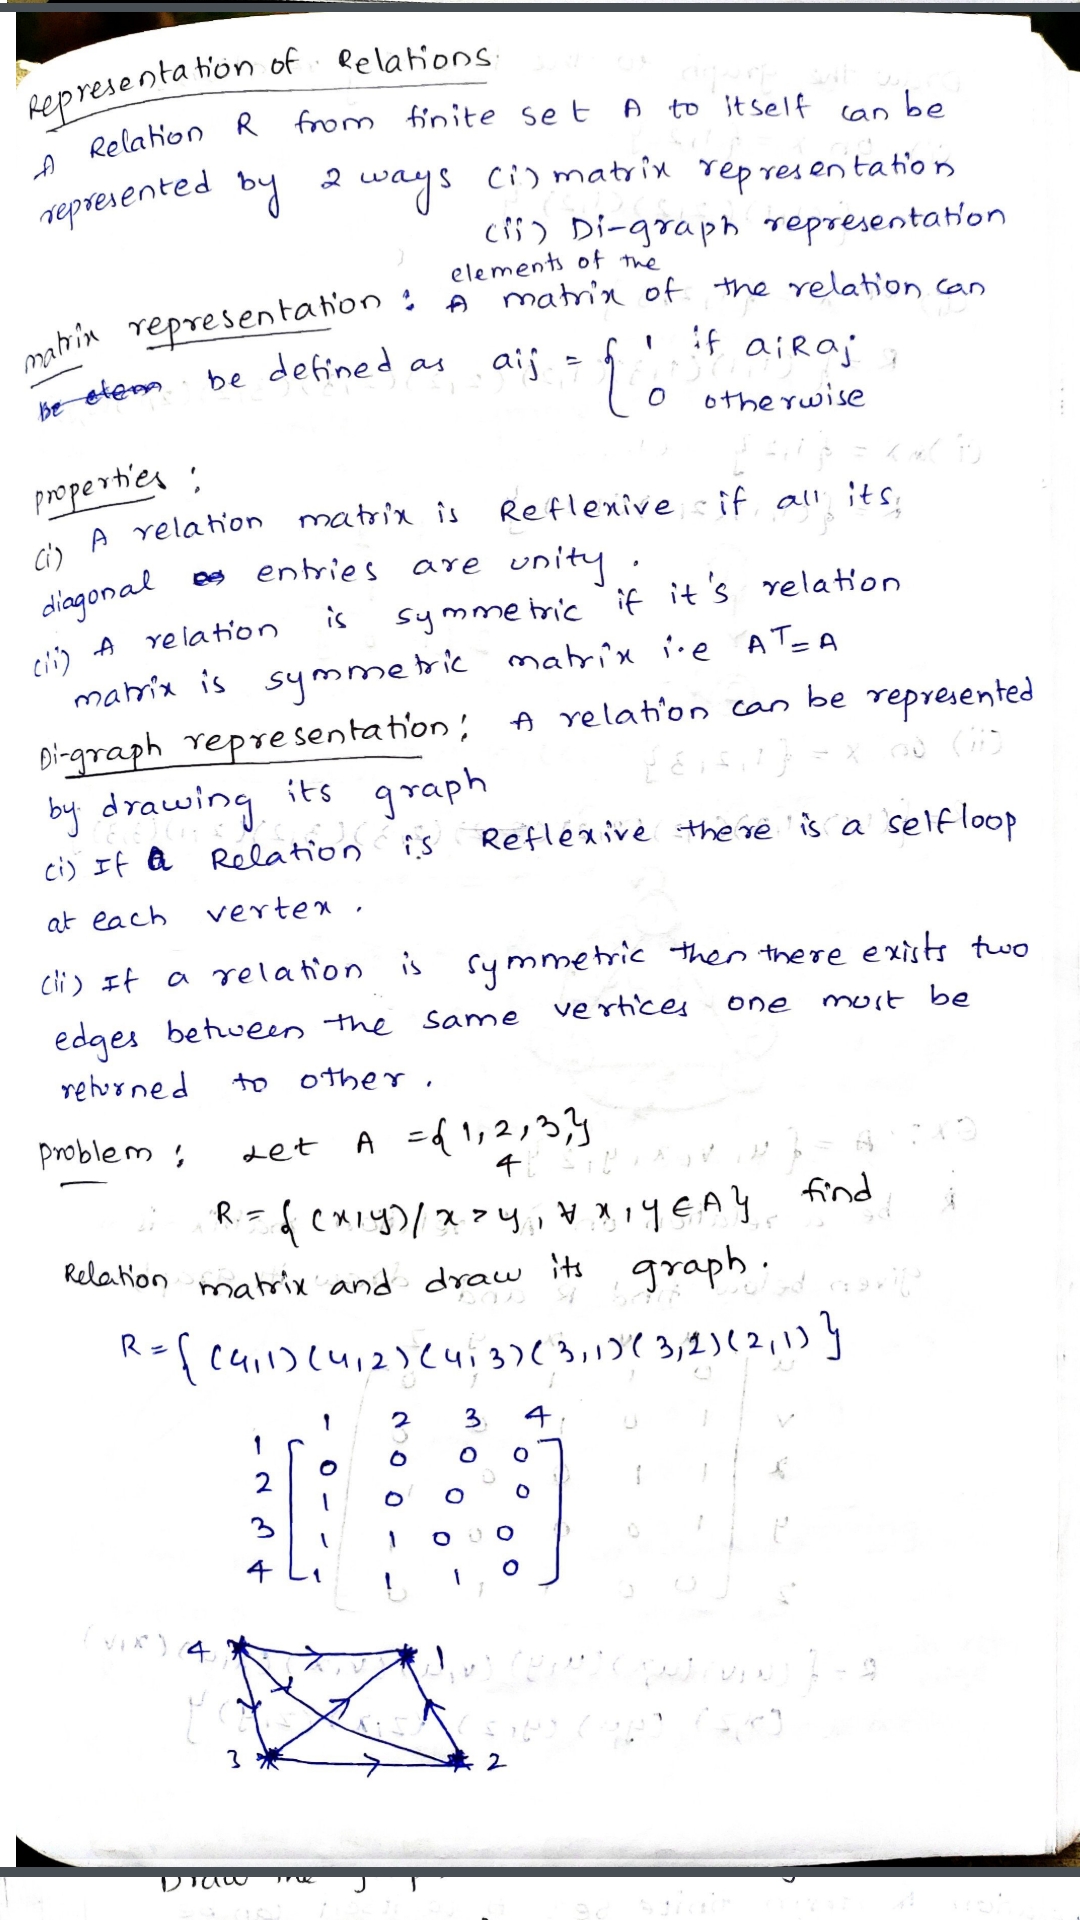 Representation of Relations
A Relation R from finite set A to itself can be
represented by 2 ways (i) matrix representation
(ii) Di-graph representation
elements of the
matrix representation : A matrix of the relation can
be defined as aij = { 1 if aiRaj
0 otherwise
properties :
(i) A relation matrix is Reflexive if all its
diagonal entries are unity.
(ii) A relation is symmetric if it's relation
matrix is symmetric matrix i.e A^T = A
Di-graph representation : A relation can be represented
by drawing its graph
(i) If a Relation is Reflexive there is a selfloop
at each vertex.
(ii) If a relation is symmetric then there exists two
edges between the same vertices one must be
returned to other.
problem : Let A = {1,2,3,}
4
R = {(x,y)/ x > y, ∀ x,y ∈ A} find
Relation matrix and draw its graph.
R = { (4,1) (4,2) (4,3) (3,1) (3,2) (2,1) }
1 2 3 4
1 0 0 0 0
2 1 0 0 0
3 1 1 0 0
4 1 1 1 0
4 1
3 2